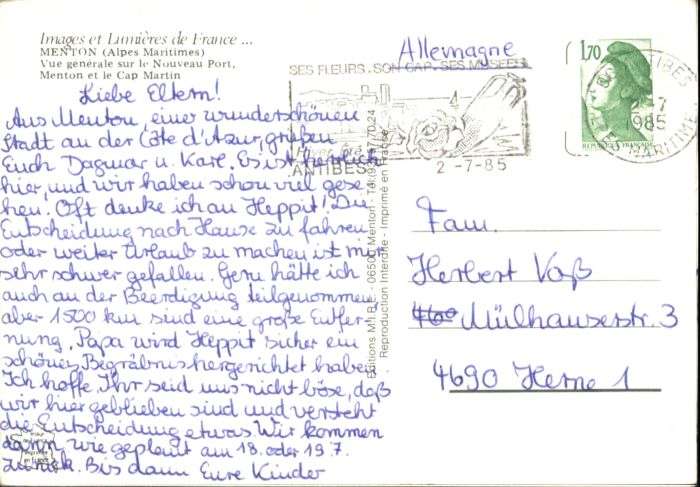 Images et Lumières de France ...
MENTON (Alpes Maritimes)
Vue générale sur le Nouveau Port,
Menton et le Cap Martin
Liebe Eltern!
Aus Menton, einer wunderschönen
Stadt an der Côte d'Azur, grüßen
Euch Dagmar u. Karl. Es ist herrlich
hier, und wir haben schon viel gese-
hen. Oft denke ich an Heppit! Die
Entscheidung nach Hause zu fahren
oder weiter Urlaub zu machen ist mir
sehr schwer gefallen. Gern hätte ich
auch an der Beerdigung teilgenommen
aber 1500 km sind eine große Entfer-
nung. Papa wird Heppit sicher ein
schönes Begräbnis hergerichtet haben.
Ich hoffe, Ihr seid uns nicht böse, daß
wir hier geblieben sind und versteht
die Entscheidung etwas. Wir kommen
dann wie geplant am 18. oder 19.7.
zurück. Bis dann Eure Kinder
Editions M - 06500 Menton - Tél.
Reproduction Interdite - Imprimé en France
Allemagne
SES FLEURS. SON CAP. SES MUSEES
ANTIBES
2-7-85
1,70
REPUBLIQUE FRANÇAISE
ANTIBES
2-7
1985
MARITIMES
Fam.
Herbert Voß
460 Mülhauserstr. 3
4690 Herne 1